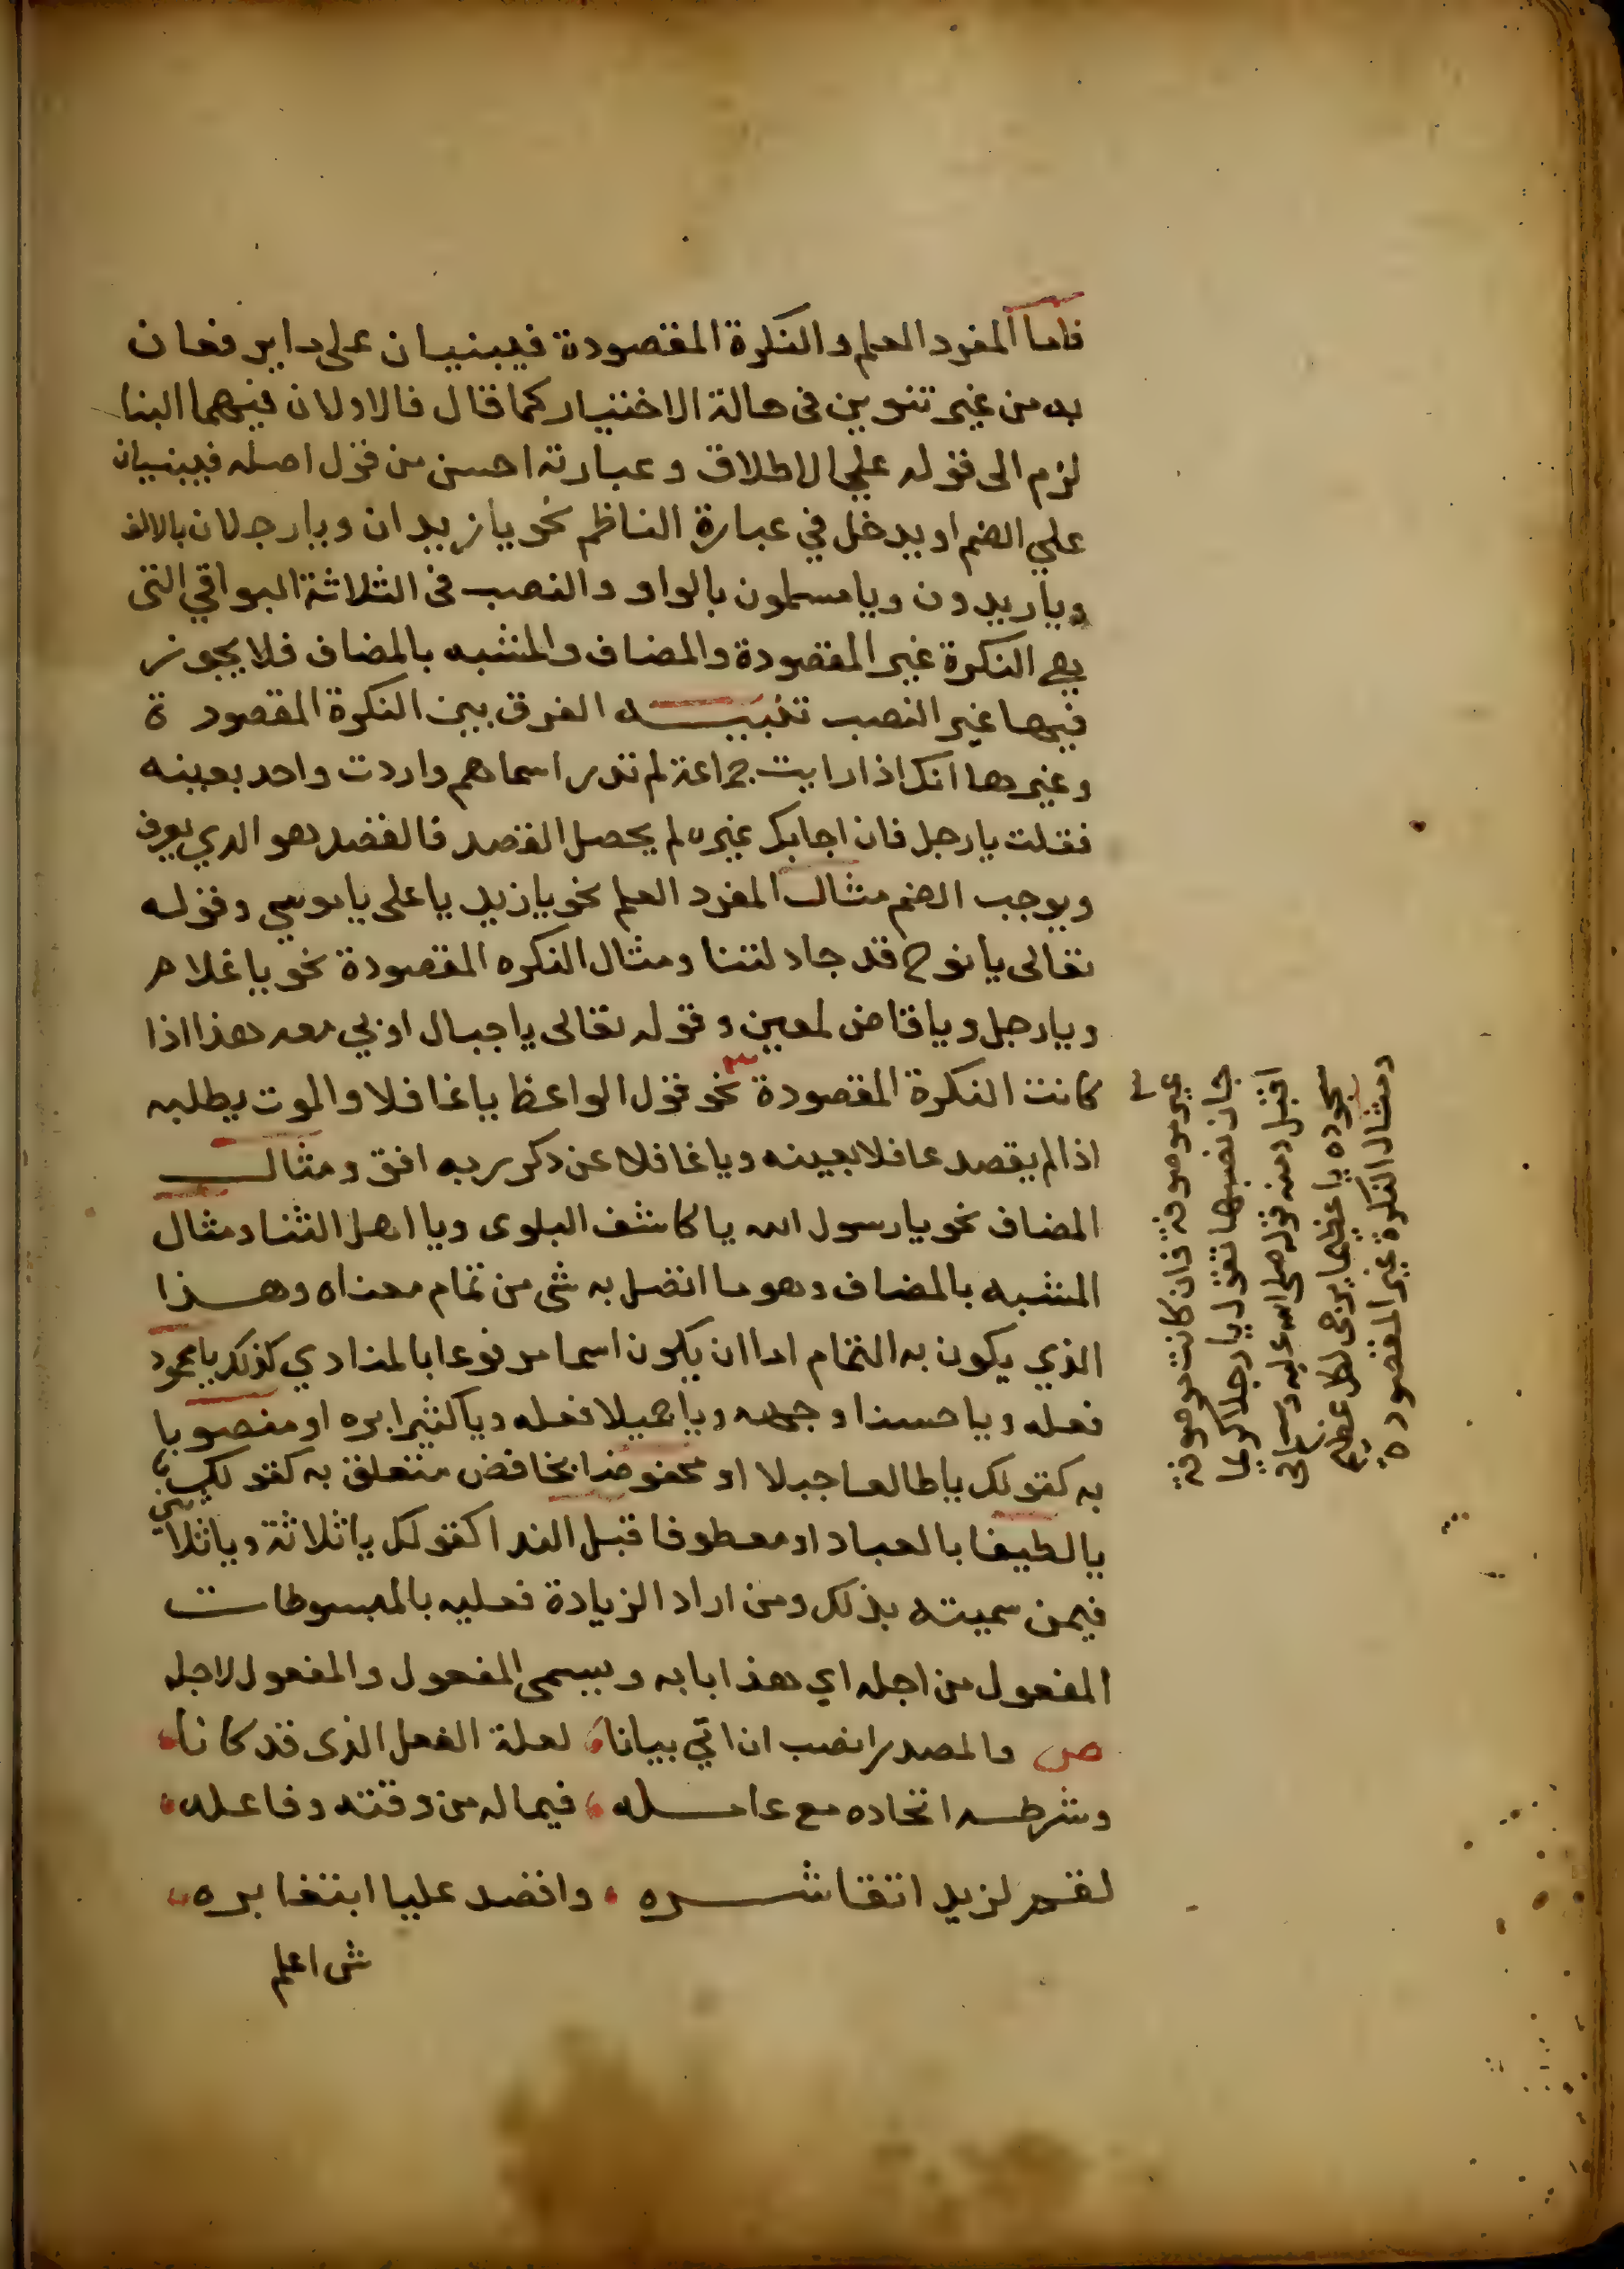 فاما المفرد العلم والنكرة المقصودة فيبنيان على ما يرفعان
به من غير تنوين في حالة الاختيار كما قال فالاولان فيهما البنا
لزم الى قوله علي الاطلاق وعبارته احسن من قول اصله فيبنيان
علي الضم اويدخل في عبارة الناظم نحو يا زيدان ويا رجلان بالالف
ويا زيدون ويا مسلمون بالواو والنصب في الثلاثة البواقي التي
هي النكرة غير المقصودة والمضاف والمشبه بالمضاف فلا يجوز
فيها غير النصب تنبيه الفرق بين النكرة المقصودة
وغيرها انك اذا رايت جماعة لم تدر اسماهم واردت واحد بعينه
فقلت يا رجل فان اجابك غيره لم يحصل القصد فالقصد هو الدي يعرف
ويوجب الضم مثال المفرد العلم نحو يا زيد يا على يا موسي وقوله
تعالى يا نوح قد جادلتنا ومثال النكره المقصودة نحو يا غلام
ويا رجل ويا قاض لمعين وقوله تعالى يا جبال اوبي معه هذا اذا
كانت النكرة المقصودة نحو قول الواعظ يا غافلا والموت يطلبه
اذا لم يقصد غافلا بعينه ويا غافلا عن ذكر ربه افق ومثال
المضاف نحو يا رسول الله يا كاشف البلوى ويا اهل الثنا ومثال
المشبه بالمضاف وهو ما اتصل به شي من تمام معناه وهذا
الذي يكون به التمام اما ان يكون اسما مرفوعا بالمنادي كقولك يا محمود
فعله ويا حسنا وجهه ويا جميلا فعله ويا كثيرا بره او منصوبا
به كقولك يا طالعا جبلا او مخفوضا بخافض متعلق به كقولك
يا لطيفا بالعباد او معطوفا قبل الندا كقولك يا ثلاثة ويا ثلاثين
فيمن سميته بذلك ومن اراد الزيادة فعليه بالمبسوطات
المفعول من اجله اي هذا بابه ويسمى المفعول والمفعول لاجله
ص والمصدر انصب ان اتي بيانا لعلة الفعل الذى قد كانا
وشرطه اتحاده مع عامله فيما له من وقته وفاعله
لقم لزيد اتقا شره واقصد عليا ابتغا بره
ش اعلم
غير موصوفة فان كانت موصوفة
جاز نصبها تقول يا رجلا كريما
اقبل ومنه قوله صلى الله عليه وسلم في
سجوده يا عظيما يرجى لكل عظيم
ومثال النكرة غير المقصودة